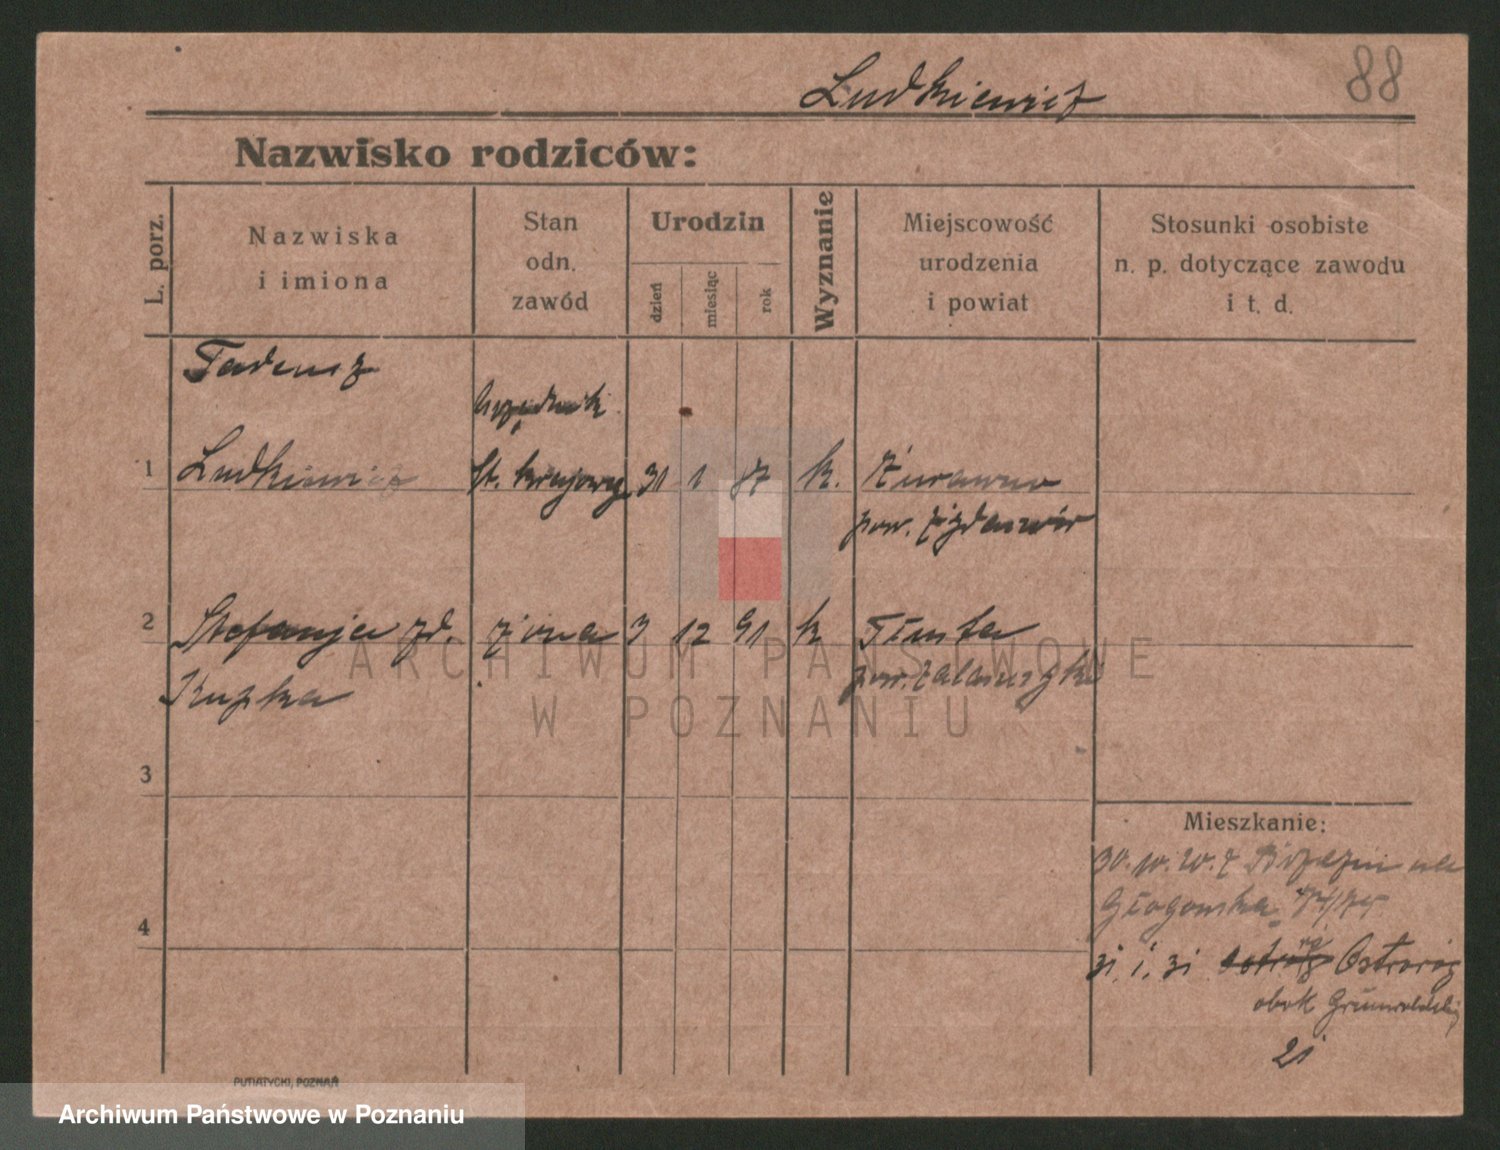 88
Ludkiewicz
Nazwisko rodziców:
L. porz.
Nazwiska
i imiona
Stan
odn.
zawód
Urodzin
dzień
miesiąc
rok
Wyznanie
Miejscowość
urodzenia
i powiat
Stosunki osobiste
n. p. dotyczące zawodu
i t. d.
Tadeusz
urzędnik
1 Ludkiewicz st. krajowy 31 1 87 k. Żurawno
pow. Żydaczów
2 Stefanja zd. żona 3 12 91 k Tłusta
Kupka pow. Zaleszczyki
ARCHIWUM PAŃSTWOWE
W POZNANIU
3
Mieszkanie:
30.10.20. z ul
Głogowska
4
31. 1. 31 Ostroróg
obok Grunwaldzkiej
21
PUTIATYCKI, POZNAŃ
Archiwum Państwowe w Poznaniu